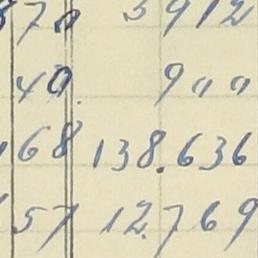 70 3912
40. 9 " "
68 138.636
57 12.769